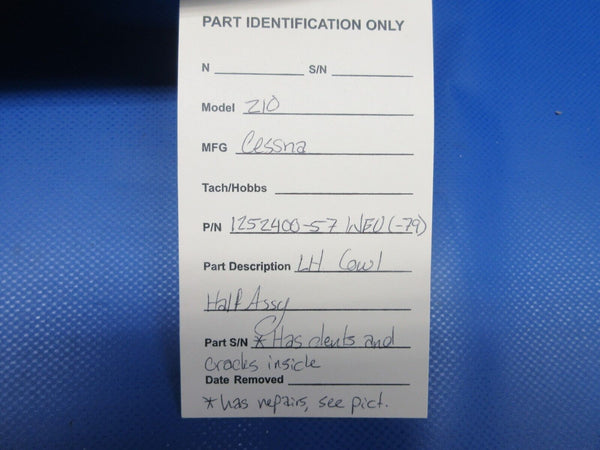 PART IDENTIFICATION ONLY
N S/N
Model 210
MFG Cessna
Tach/Hobbs
P/N 1252400-57 WEU (-79)
Part Description LH Cowl
Half Assy
Part S/N * Has dents and
cracks inside
Date Removed
* has repairs, see pict.